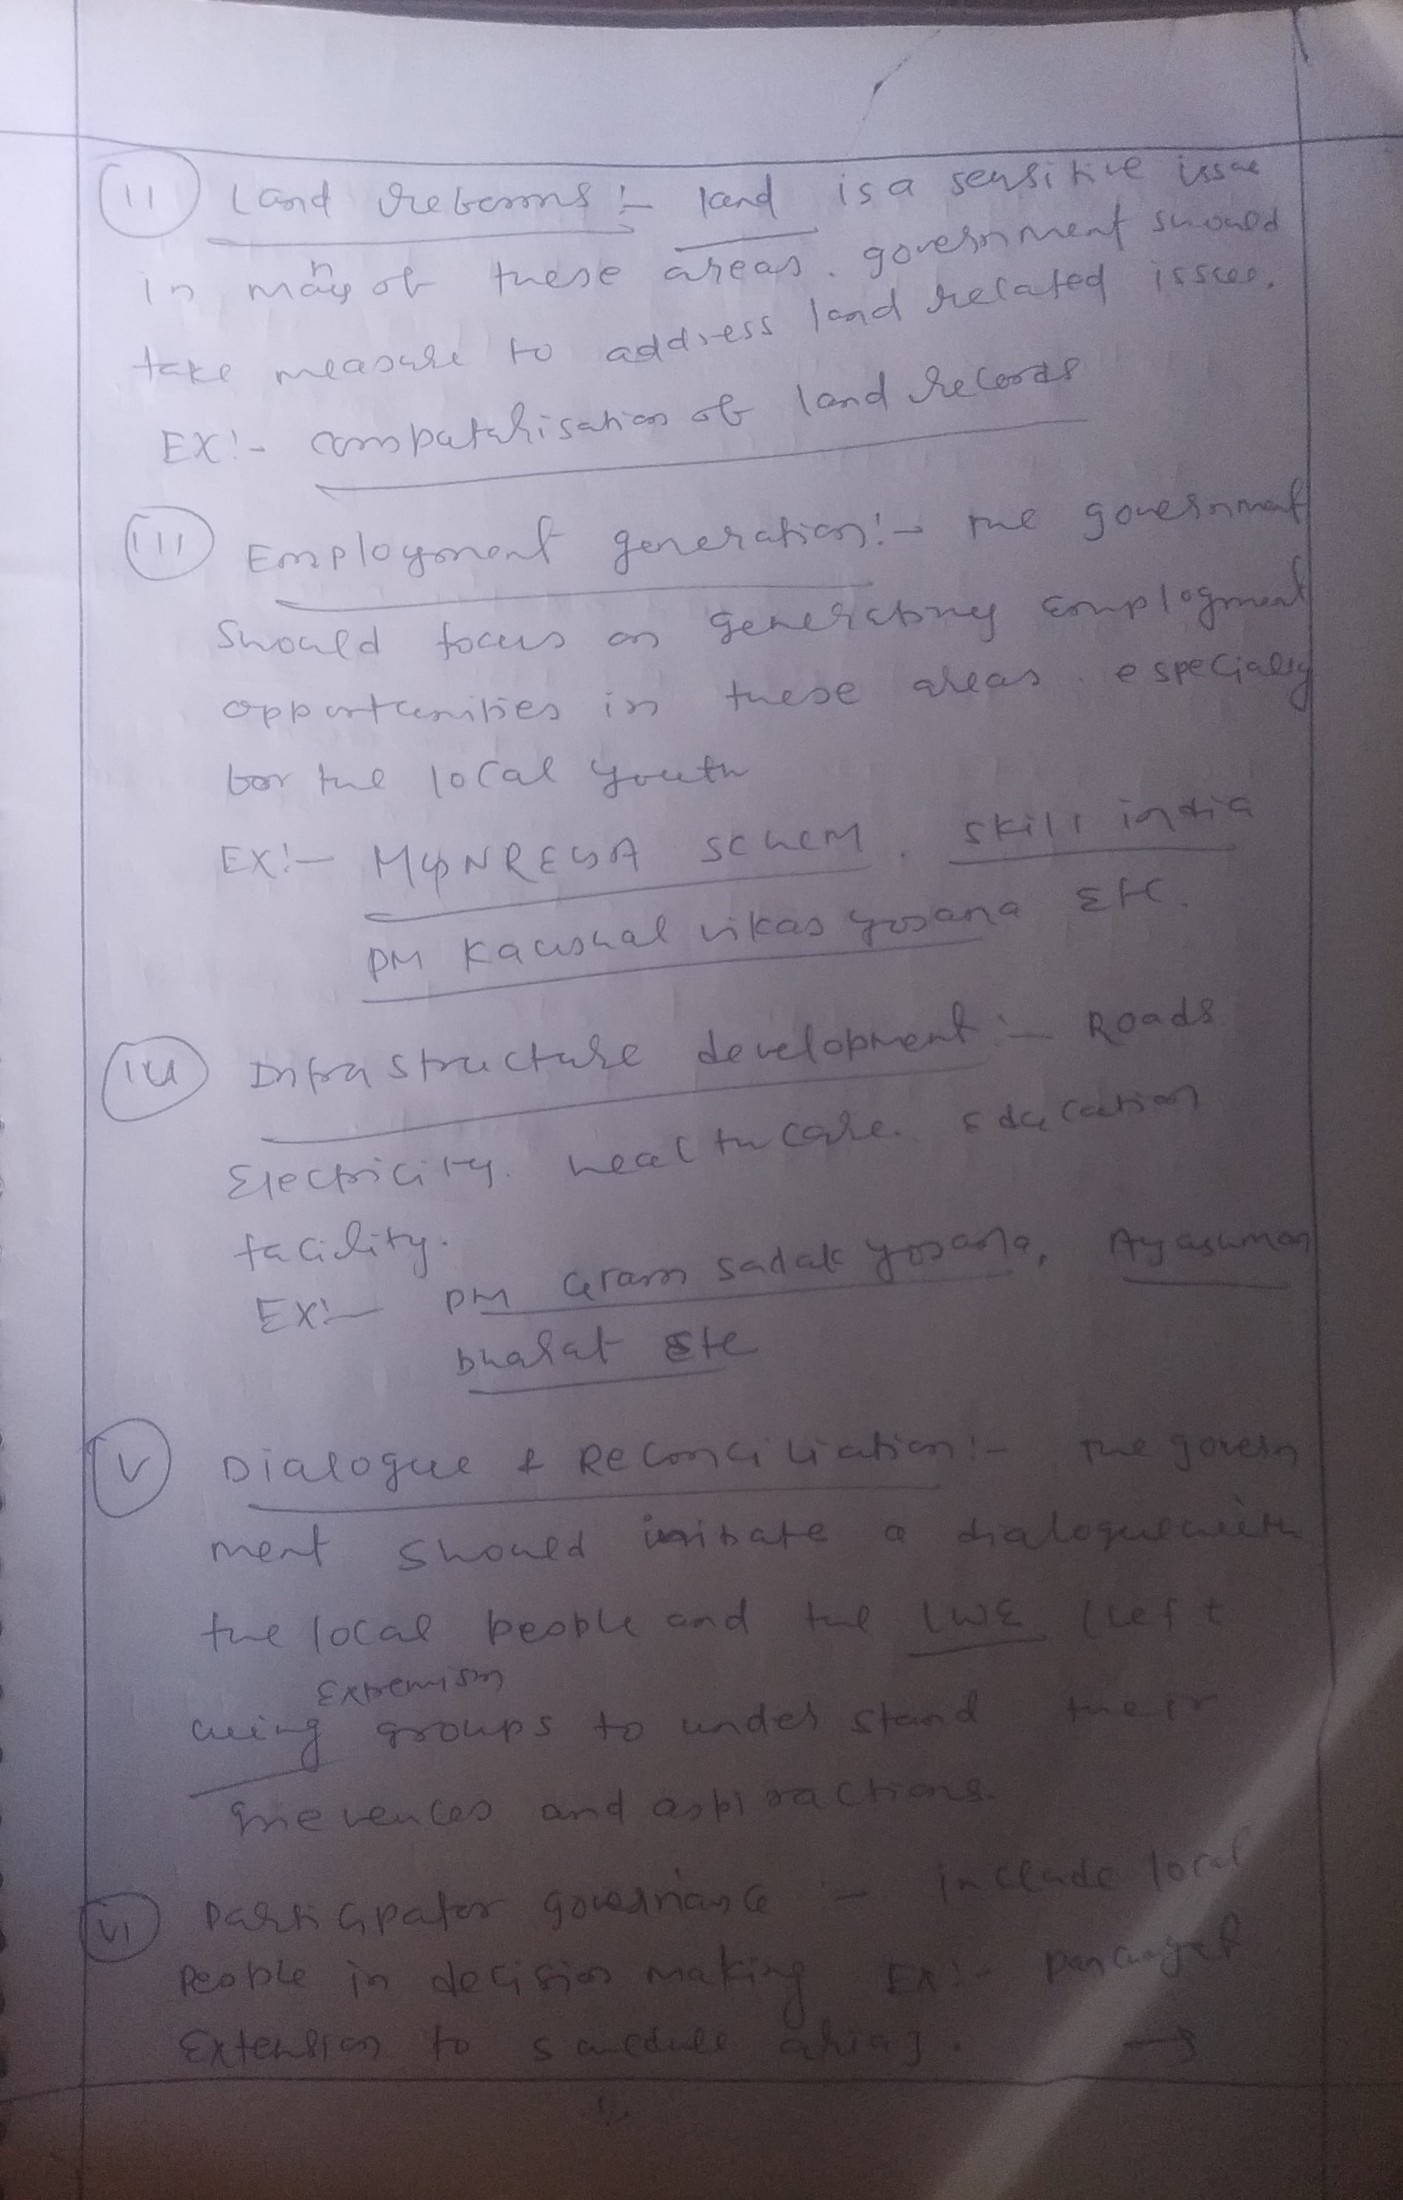 (ii) Land reforms :- land is a sensitive issue
in many of these areas. government should
take measure to address land related issues.
EX:- computerisation of land records
(iii) Employment generation :- The government
should focus on generating employment
opportunities in these areas. especially
for the local youth
EX:- MGNREGA schem, skill india
PM Kaushal vikas yojana Etc.
(iv) Infrastructure development :- Roads
Electricity. healthcare. Education
facility.
EX:- PM Gram sadak yojana, Ayashman
bharat Etc
(v) Dialogue & Reconciliation :- The govern
ment should initiate a dialogue with
the local people and the LWE (Left
Extremism
wing groups to understand their
grievences and aspiractions.
(vi) Participator governance :- include local
People in decision making EX:- Panchayat
Extension to schedule